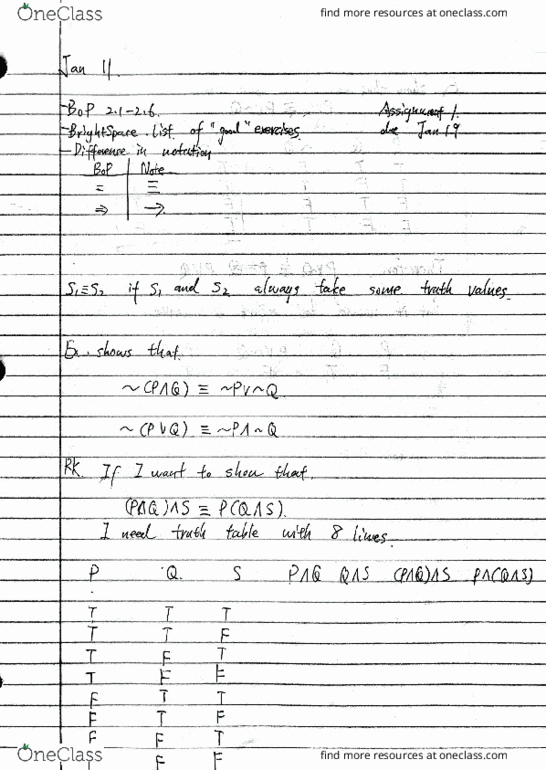 OneClass find more resources at oneclass.com
Jan 11.
- BoP 2.1-2.6. Assignment 1.
- BrightSpace. list of "good" exercises due Jan 19
- Difference in notation
BoP | Note
= | ≡
⇒ | →
S₁≡S₂ if S₁ and S₂ always take some truth values.
Ex. shows that.
~(P∧Q) ≡ ~P∨~Q
~(P∨Q) ≡ ~P∧~Q
RK. If I want to show that.
(P∧Q)∧S ≡ P(Q∧S).
I need truth table with 8 lines.
P Q. S P∧Q Q∧S (P∧Q)∧S P∧(Q∧S)
T T T
T T F
T F T
T F F
F T T
F T F
F F T
F F F
OneClass find more resources at oneclass.com